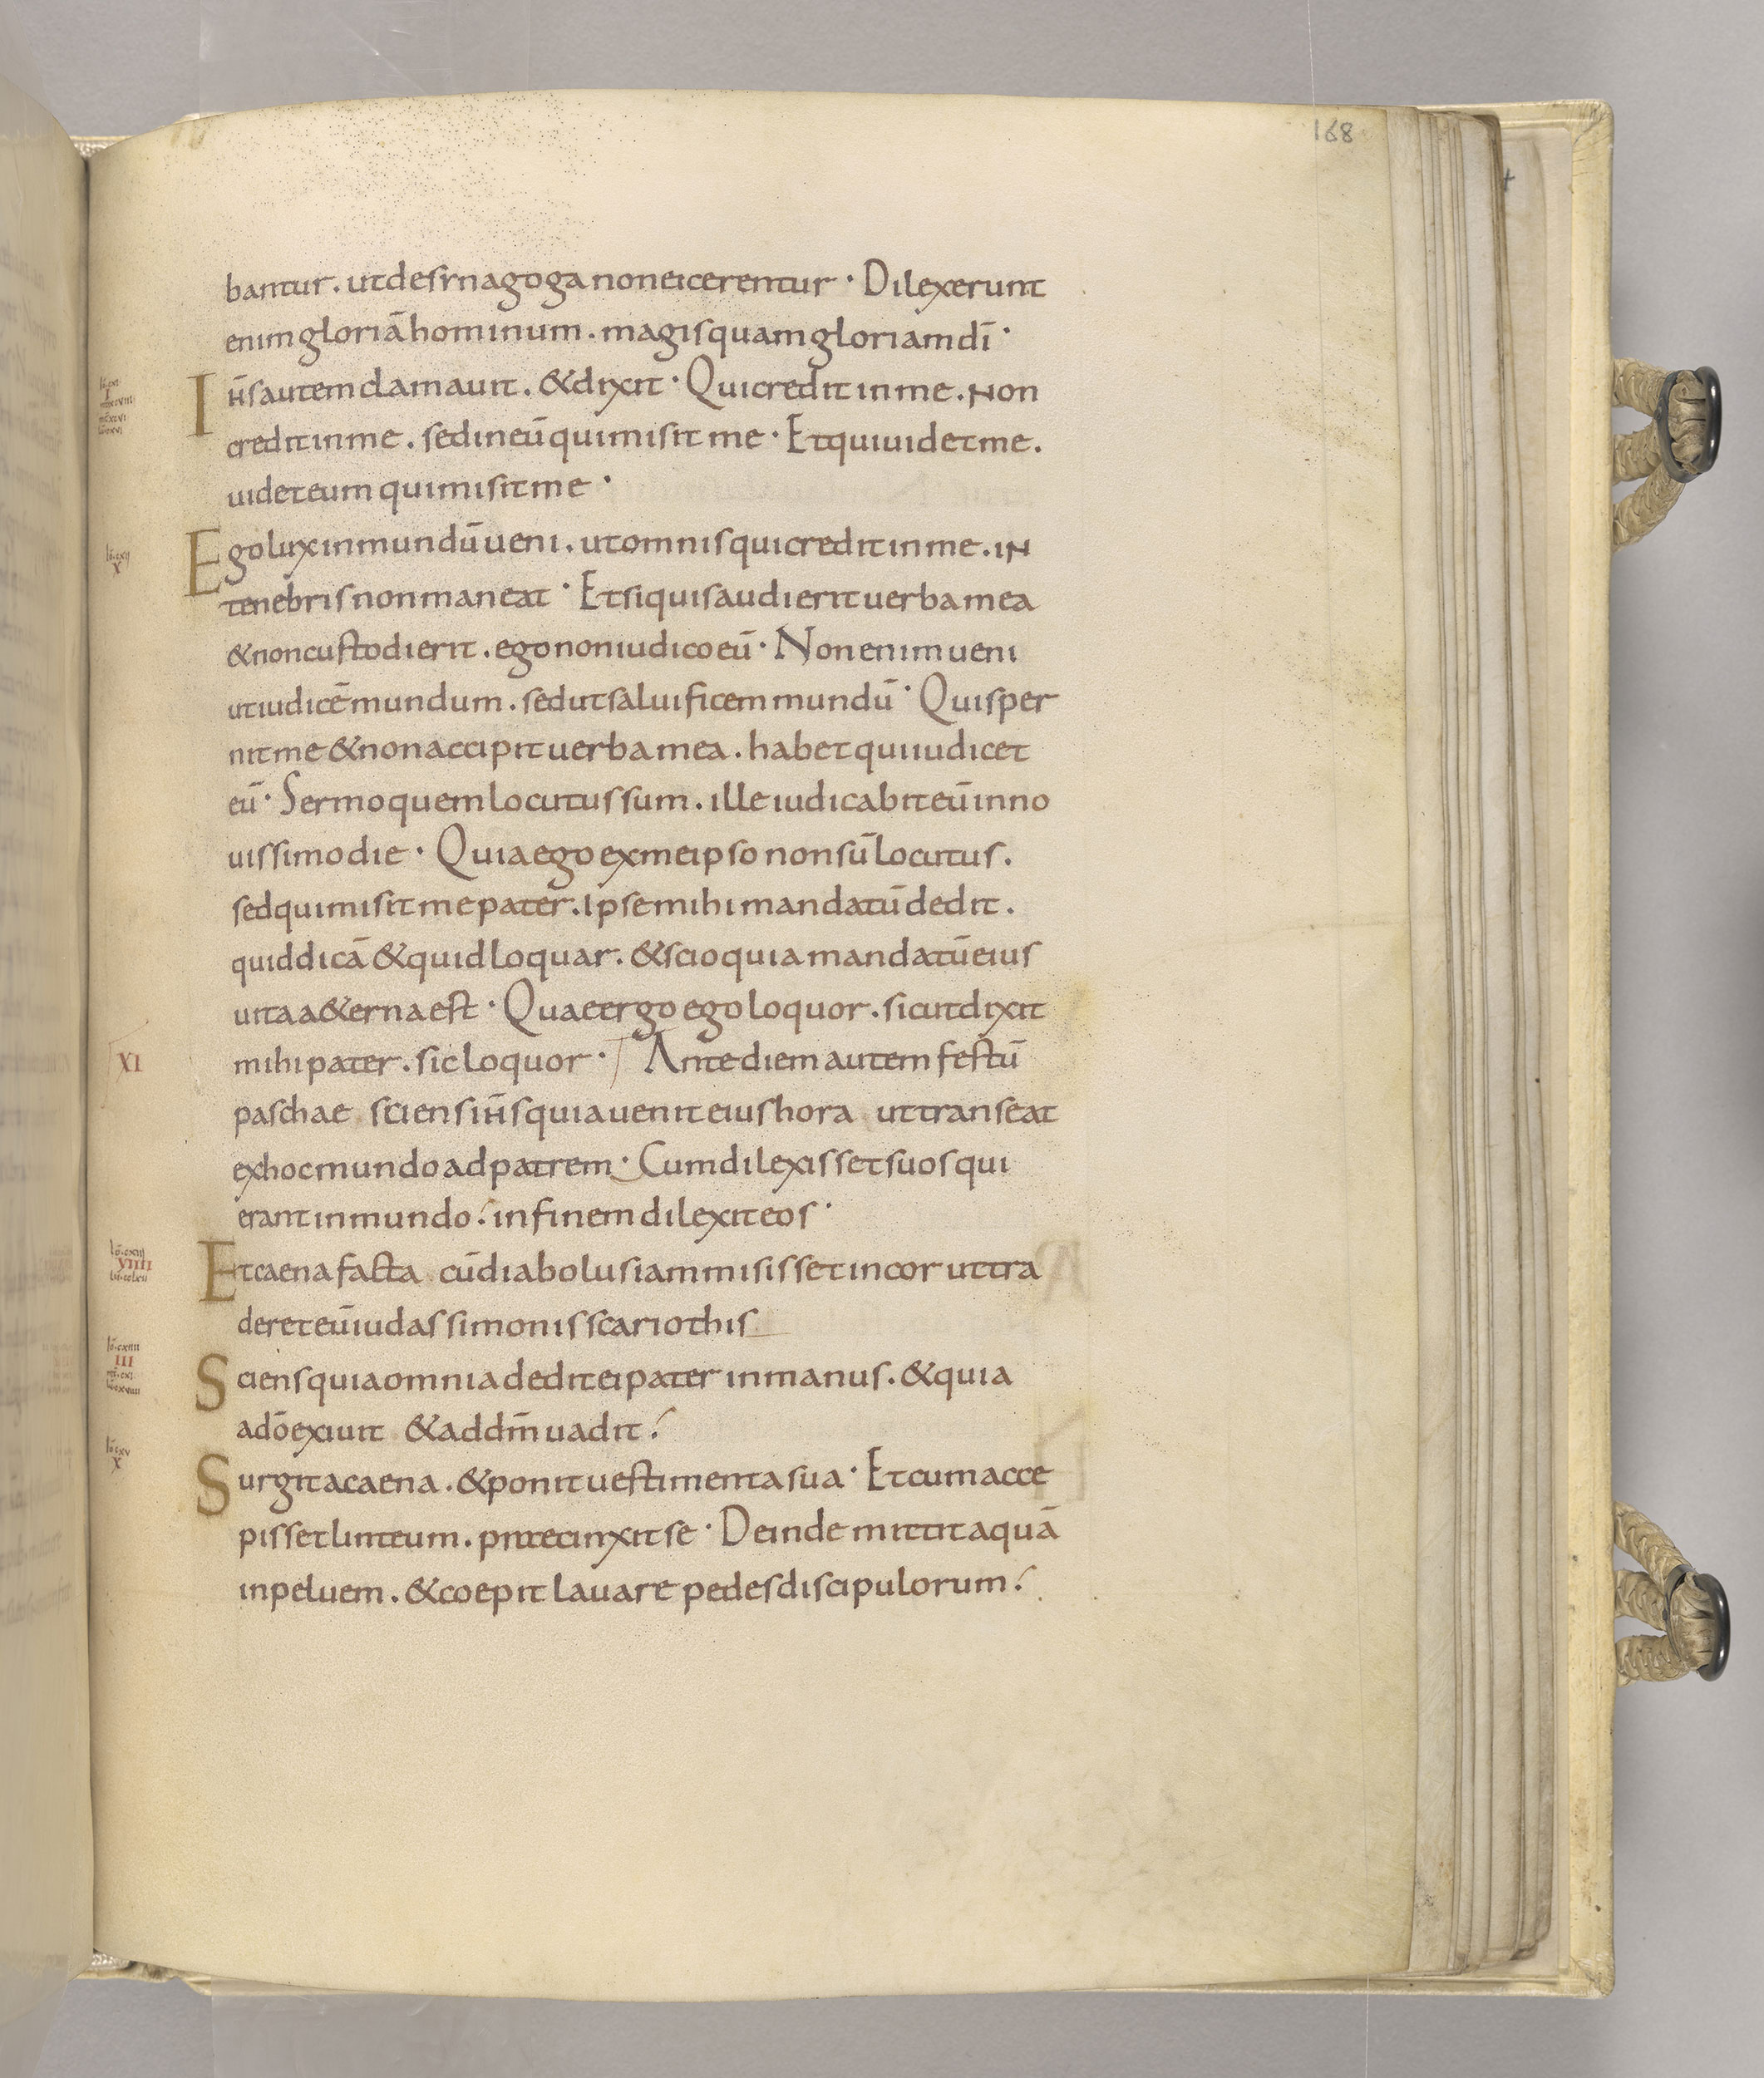 168
bantur. ut de synagoga non eicerentur · Dilexerunt
enim gloriā hominum. magis quam gloriam dī ·
Ih̄s autem clamauit. & dixit · Qui credit in me. Non
credit in me. sed in eū qui misit me · Et qui uidet me.
uidet eum qui misit me ·
Ego lux in mundū ueni. ut omnis qui credit in me. IN
tenebris non maneat · Et si quis audierit uerba mea
& non custodierit. ego non iudico eū · Non enim ueni
ut iudicē mundum. sed ut saluificem mundū · Qui sper
nit me & non accipit uerba mea. habet qui iudicet
eū · Sermo quem locutus sum. ille iudicabit eū in no
uissimo die · Quia ego ex me ipso non sū locutus.
sed qui misit me pater. Ipse mihi mandatū dedit.
quid dicā & quid loquar. & scio quia mandatū eius
uita a&erna est · Quae ergo ego loquor. sicut dixit
XI mihi pater. sic loquor · Ante diem autem festū
paschae sciens ih̄s quia uenit eius hora ut transeat
ex hoc mundo ad patrem · Cum dilexisset suos qui
erant in mundo. in finem dilexit eos ·
VIIII Et caena facta cū diabolus iam misisset in cor ut tra
deret eū iudas simonis scariothis
III Sciens quia omnia dedit ei pater in manus. & quia
a dō exiuit & ad dm̄ uadit.
X Surgit a caena. & ponit uestimenta sua · Et cum acce
pisset linteum. praecinxit se · Deinde mittit aquā
in peluem. & coepit lauare pedes discipulorum.